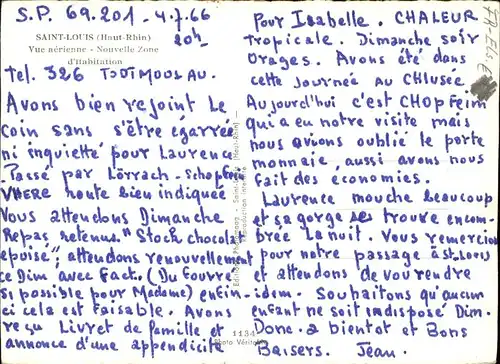 S.P. 69.201 - 4.7.66
20h
SAINT-LOUIS (Haut-Rhin)
Vue aérienne - Nouvelle Zone
d'Habitation
Tel. 326 TODTMOOS AU.
Avons bien rejoint le
coin sans s'être égarrés
ni inquietté pour Laurence
Passé par Lörrach - Schopfeim
route bien indiquée
Vous attendons Dimanche
Repas retenus. "Stock chocolat
epuisé", attendons renouvellement
ce Dim avec Fact. (Du Fouvre
si possible pour Madame) enfin
ci cela est faisable. Avons
reçu Livret de famille et
annonce d'une appendicite
Pour Isabelle. CHALEUR
tropicale. Dimanche soir
Orages. Avons été dans
cette journée au CHLUSEE
Aujourd'hui c'est CHOPFEIM
qui a eu notre visite mais
nous avions oublié le porte
monnaie, aussi avons nous
fait des économies.
Laurence mouche beaucoup
et sa gorge se trouve encom-
brée la nuit. Vous remercions
pour notre passage à St. Louis
et attendons de vou rendre
idem. Souhaitons qu'aucun
enfant ne soit indisposé Dim.
Donc. a bientot et Bons
Baisers. Jean
1134
Photo Véritable
Reproduction interdite